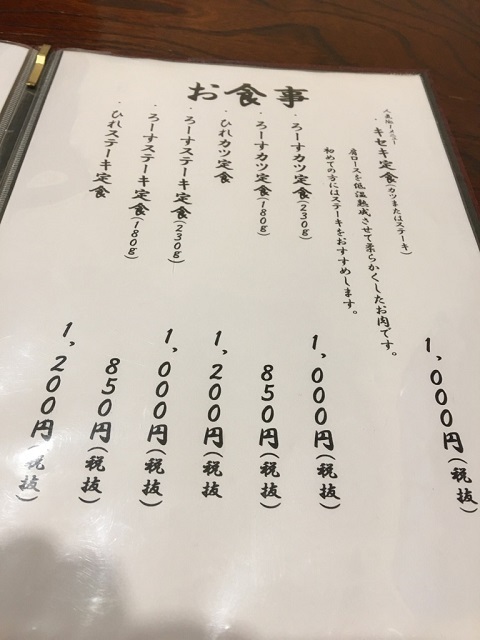 お食事
・キセキ定食(カツまたはステーキ) 1,000円(税抜)
肩ロースを低温熟成させて柔らかくしたお肉です。
初めての方にはステーキをおすすめします。
・ろーすカツ定食(230g) 1,000円(税抜)
・ろーすカツ定食(180g) 850円(税抜)
・ひれカツ定食 1,200円(税抜
・ろーすステーキ定食(230g) 1,000円(税抜)
・ろーすステーキ定食(180g) 850円(税抜)
・ひれステーキ定食 1,200円(税抜)